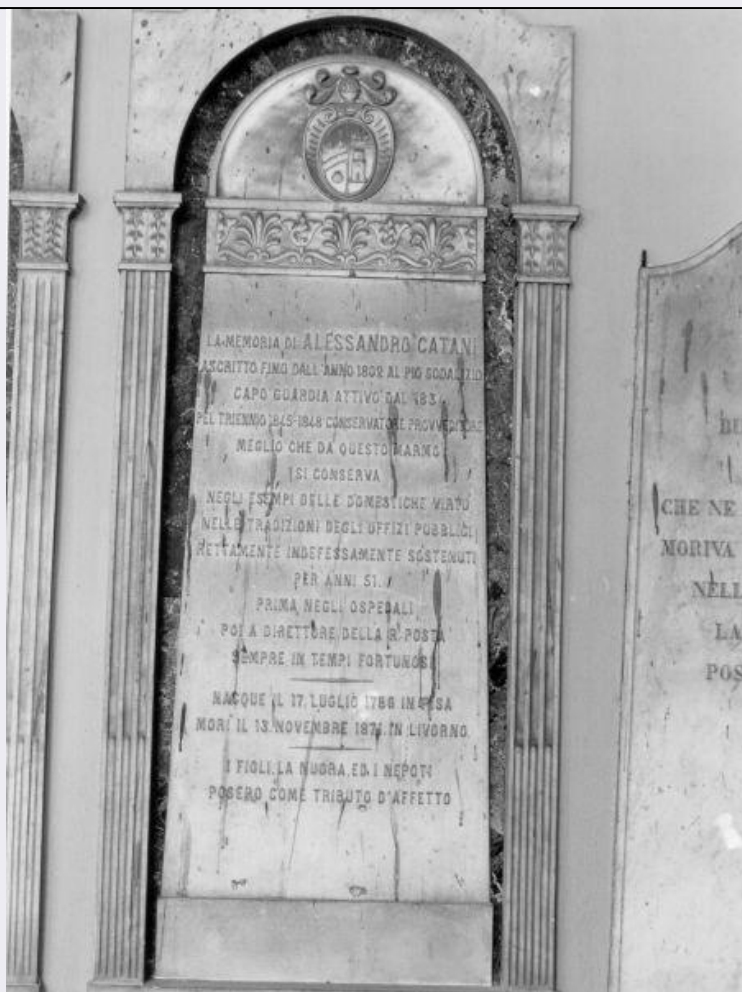 LA MEMORIA DI ALESSANDRO CATANI
ASCRITTO FINO DALL'ANNO 1802 AL PIO SODALIZIO
CAPO GUARDIA ATTIVO DAL 183
PEL TRIENNIO 1845-1848 CONSERVATORE PROVVEDITORE
MEGLIO CHE DA QUESTO MARMO
SI CONSERVA
NEGLI ESEMPI DELLE DOMESTICHE VIRTÙ
NELLE TRADIZIONI DEGLI UFFIZI PUBBLICI
RETTAMENTE INDEFESSAMENTE SOSTENUTI
PER ANNI 51
PRIMA NEGLI OSPEDALI
POI A DIRETTORE DELLA R. POSTA
SEMPRE IN TEMPI FORTUNOSI
NACQUE IL 17 LUGLIO 1786 IN PISA
MORÌ IL 13 NOVEMBRE 1871 IN LIVORNO
I FIGLI, LA NUORA, ED I NEPOTI
POSERO COME TRIBUTO D'AFFETTO
CHE NE
MORIVA
NELL
LA
POS